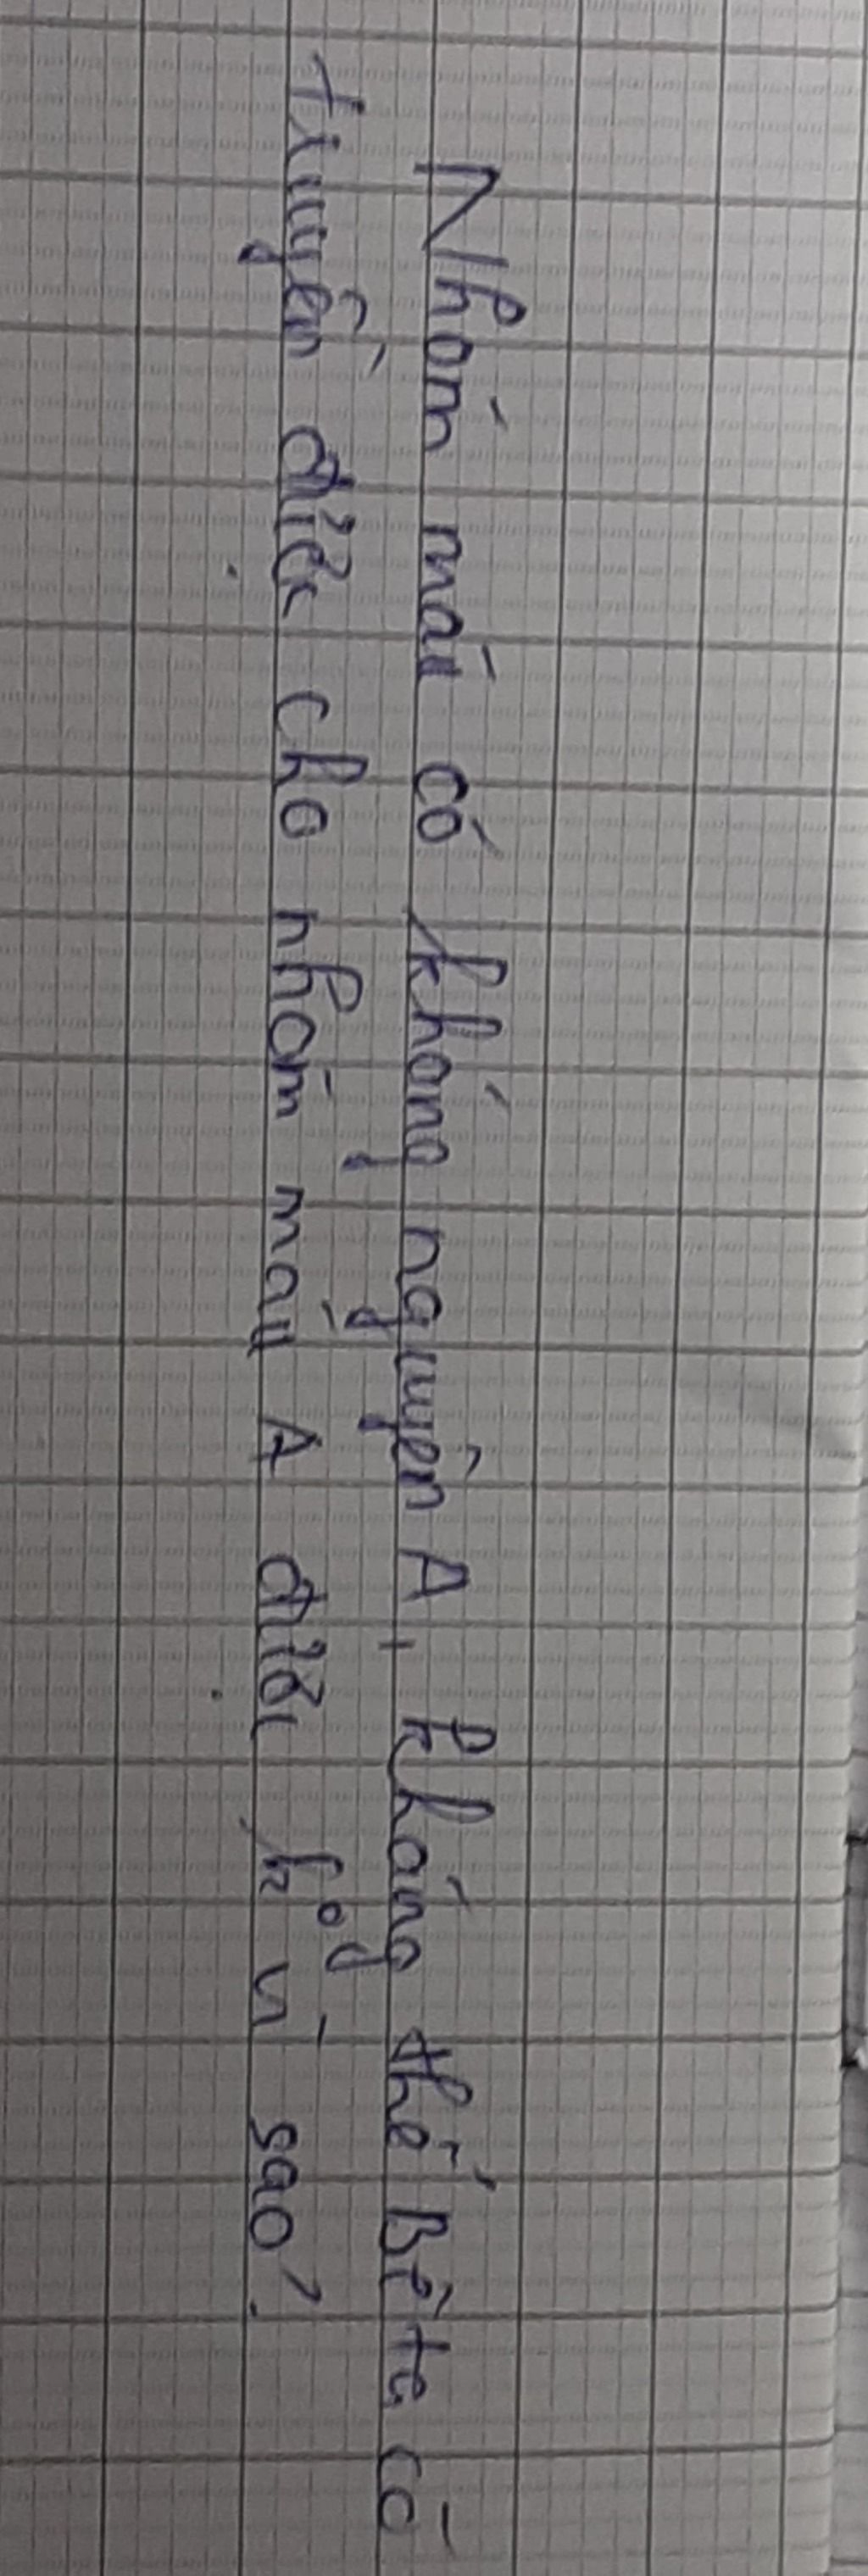 Nhóm máu có kháng nguyên A, kháng thể Bêta có
truyền được cho nhóm máu A được kog vì sao?